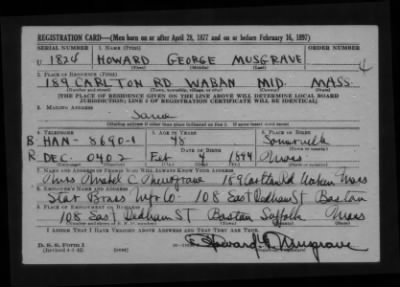 REGISTRATION CARD—(Men born on or after April 28, 1877 and on or before February 16, 1897)
SERIAL NUMBER 1. NAME (Print) ORDER NUMBER
U 1824 HOWARD GEORGE MUSGRAVE
(First) (Middle) (Last)
2. PLACE OF RESIDENCE (Print)
189 CARLTON RD WABAN MID. MASS
(Number and street) (Town, township, village, or city) (County) (State)
[THE PLACE OF RESIDENCE GIVEN ON THE LINE ABOVE WILL DETERMINE LOCAL BOARD
JURISDICTION; LINE 2 OF REGISTRATION CERTIFICATE WILL BE IDENTICAL]
3. MAILING ADDRESS
Same
(Mailing address if other than place indicated on line 2. If same insert word same)
4. TELEPHONE 5. AGE IN YEARS 6. PLACE OF BIRTH
B HAN- 8690-1 48 Somerville
DATE OF BIRTH
R DEC. 0402 Feb 4 1894 Mass
7. NAME AND ADDRESS OF PERSON WHO WILL ALWAYS KNOW YOUR ADDRESS
Mrs C. Musgrave 189 Carlton Rd Waban Mass
8. EMPLOYER'S NAME AND ADDRESS
Star Brass Mfg Co 108 East Dedham St Boston
9. PLACE OF EMPLOYMENT OR BUSINESS
108 East Dedham St Boston Suffolk Mass
(Number and street or R. F. D. number) (Town) (County) (State)
I AFFIRM THAT I HAVE VERIFIED ABOVE ANSWERS AND THAT THEY ARE TRUE.
D. S. S. Form 1
(Revised 4-1-42) (over) Howard G. Musgrave